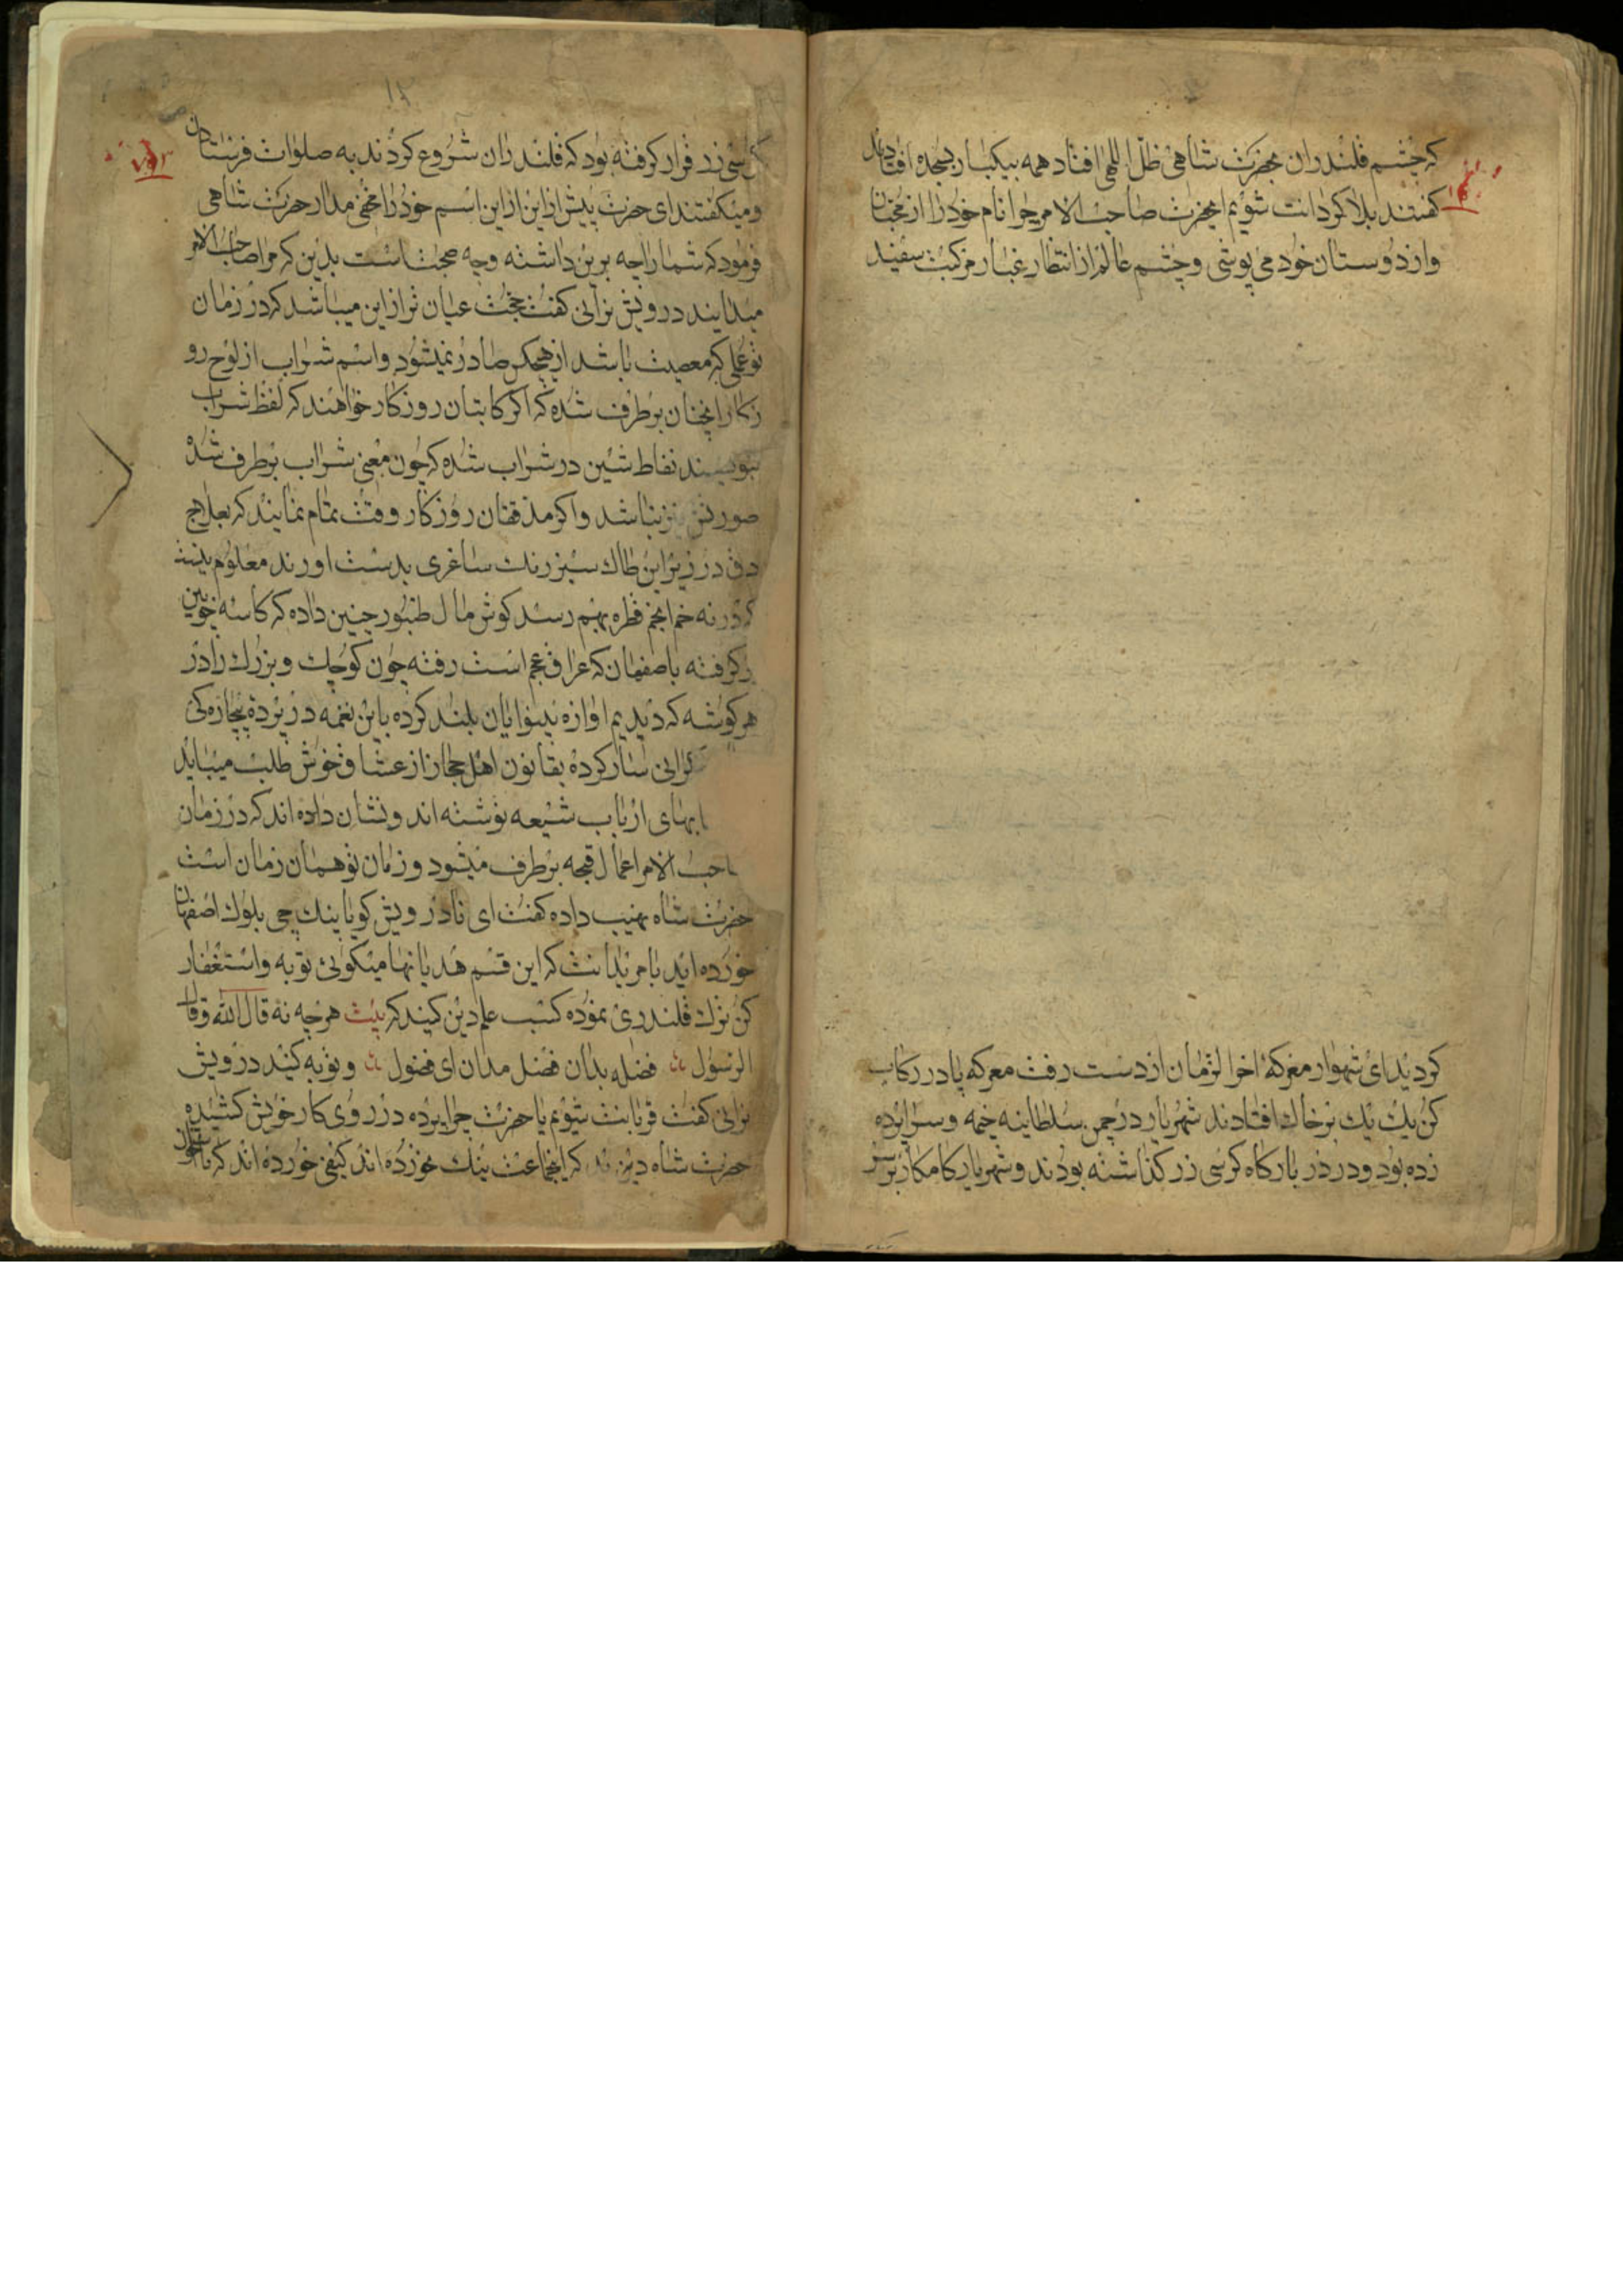 که چشم قلندران بحضرت شاهی ظل اللهی افتاد همه بیکبار بسجده افتادند
کفتند بلا کردانت شویم ایحضرت صاحب الامر چرا نام خود را از محبان
و از دوستان خود می پوشی و چشم عالم از انتظار غبار مرکبت سفید
کردید ای شهسوار معرکهٔ اخر الزمان از دست رفت معرکه پا در رکاب
کن یک یک بر خاک افتادند شهریار در چمن سلطانیه خیمه و سراپرده
زده بود و در در بارکاه کرسی زر کذاشته بودند و شهریار کامکار بر سر
کرسی زر قرار کرفته بود که قلندران شروع کردند به صلوات فرستادن
و میکفتند ای حضرت پیش از این از این اسم خود را مخفی مدار حضرت شاهی
فرمود که شما را چه برین داشته و چه حجتست بدین که مرا صاحب الامر
میدانید درویش ترابی کفت حجت عیان تر از این میباشد که در زمان
تو عملی که معصیت باشد از هیچکس صادر نمیشود و اسم شراب از لوح رو
زکار انچنان برطرف شده که اکر کاتبان روزکار خواهند که لفظ شراب
بنویسند نقاط شین در شراب شده که چون معنی شراب برطرف شده
صورتش نیز نباشد و اکر مدققان روزکار وقت تمام نمایند که بعلاج
دق در زیر این طاک سبز رنک ساغری بدست اورند معلوم نیست
که در نه خم انجم قطره بهم رسد کوش مال طنبور چنین داده که کاسه خویش
کرفته باصفهان که عراق عجم است رفته چون کوچک و بزرک را در
هر کوشه که دیدیم اوازه بینوایان بلند کرده باین نغمه در پرده بیچاره کی
ترابی ساز کرده بقانون اهل حجاز از عشاق خوش طلب مینماید
ابهای ارباب شیعه نوشته اند و نشان داده اند که در زمان
صاحب الامر اعمال قبیحه برطرف میشود و زمان تو همان زمان است
حضرت شاه نهیب داده کفت ای نادرویش کویا بنک چی بلوک اصفهان
خورده اید بامریدانت که این قسم هذیانها میکوئی توبه و استغفار
کن ترک قلندری نموده کسب علم دین کنید که بیت هرچه نه قال الله و قال
الرسول فضله بدان فضل مدان ای فضول و توبه کنید درویش
ترابی کفت قربانت شویم یا حضرت چرا پرده در روی کار خویش کشیده
حضرت شاه دیدند که اینجماعت بنک نخورده اند کیفی خورده اند که تا